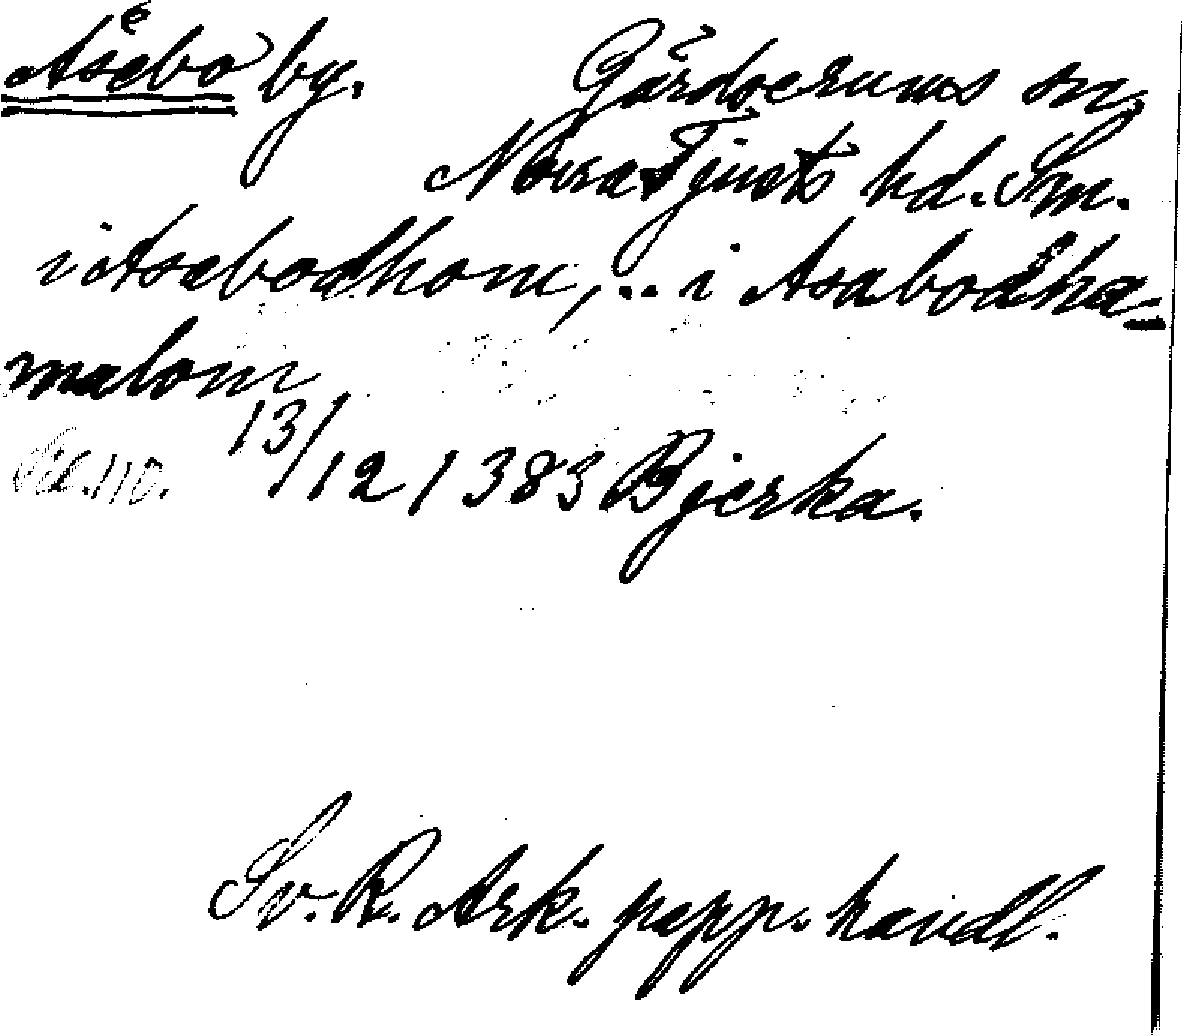 Åsebo by. Gärdserums sn,
Norra Tjusts hd. Sm.
i Asebodhom, .. i Asabodha-
malom
13/12 1383 Bjerka.
Sv. R. Ark. papp. handl.